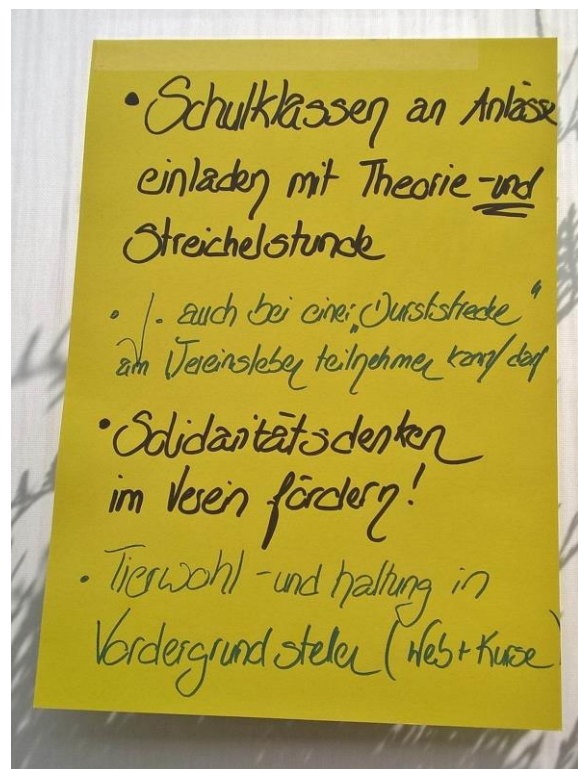 • Schulklassen an Anlässe
einladen mit Theorie -und
Streichelstunde
• /. auch bei einer „Durststrecke"
am Vereinsleben teilnehmen kann/darf
• Solidaritätsdenken
im Verein fördern!
• Tierwohl -und haltung in
Vordergrund stellen (Web + Kurse)